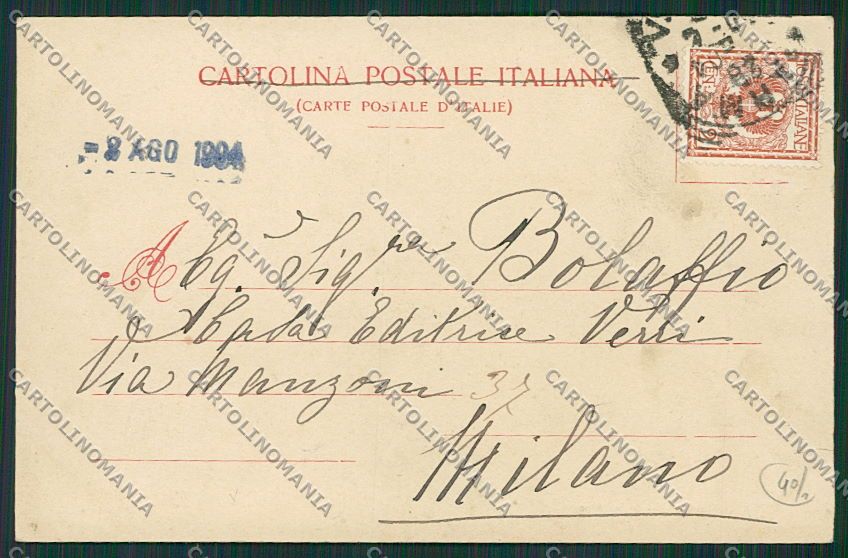 CARTOLINA POSTALE ITALIANA
(CARTE POSTALE D'ITALIE)
- 2 AGO 1904
POSTE ITALIANE
CENT. 2
A
Eg. Sig.re Bolaffio
Casa Editrice Verri
Via Manzoni 37
Milano
40/
CARTOLINOMANIA